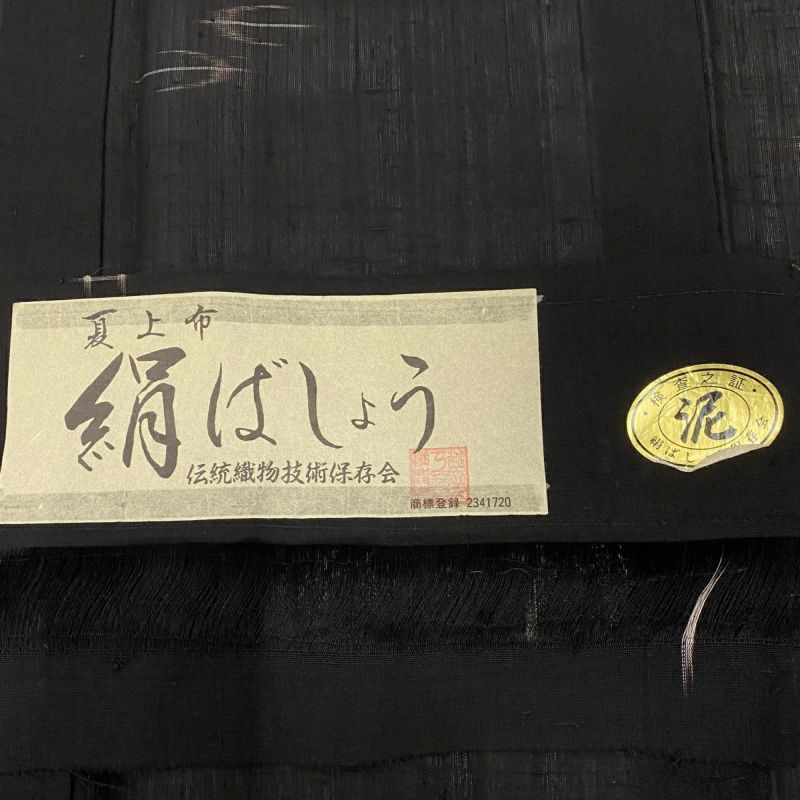 夏上布
絹ばしょう
伝統織物技術保存会
商標登録 2341720
・検査之証・
泥
絹ばし 存会